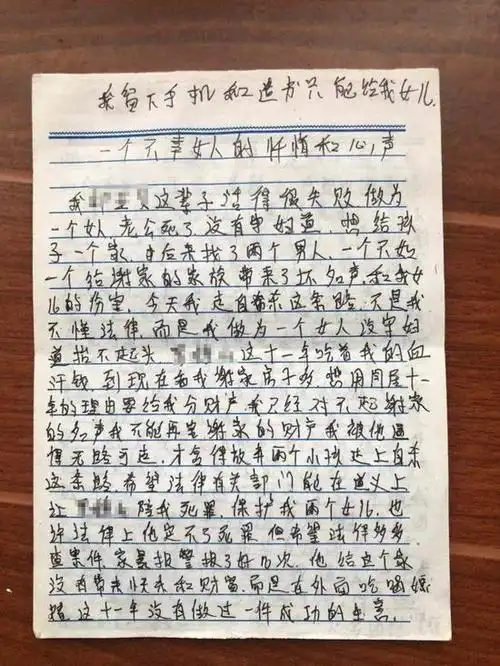 我留下手机和遗书只能给我女儿.
一个不幸女人的忏悔和心声
我 这辈子活得很失败做为
一个女人老公死了没有守妇道.想给孩
子一个家.中后来找了两个男人.一个不如
一个给谢家的家族带来了坏名声.和我女
儿的伤害.今天我走自杀这条路.不是我
不懂法律.而是我做为一个女人没守妇
道抬不起头. 这十一年吃着我的血
汗钱到现在看我谢家房子多.想用同居十一
年的理由要给我分财产.我已经对不起谢家
的名声我不能再害谢家的财产我被他逼
得无路可走.才舍得放弃两个小孩走上自杀
这条路.希望法律有关部门能在道义上
让 陪我死罪.保护我两个女儿.也
许法律上他定不了死罪.但希望法律多多
查案件.家暴报警报了好几次.他给这个家
没有带来快乐和财富.而是在外面吃喝嫖
赌.这十一年没有做过一件成功的生意.